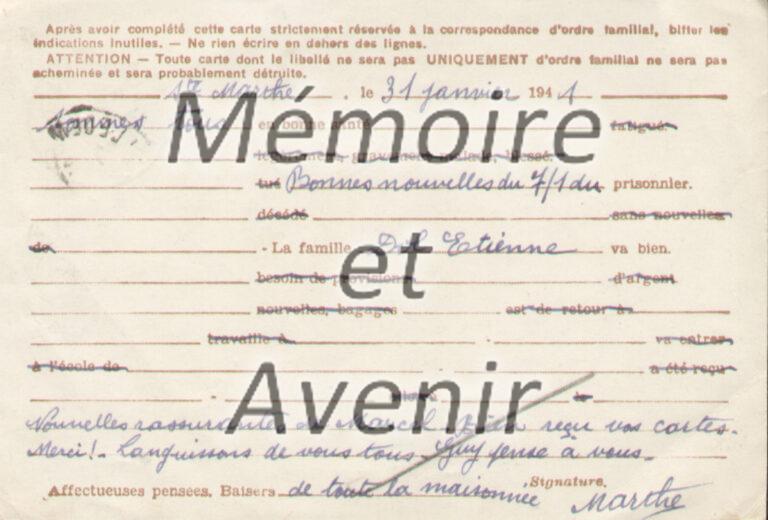 Après avoir complété cette carte strictement réservée à la correspondance d'ordre familial, biffer les
indications inutiles. — Ne rien écrire en dehors des lignes.
ATTENTION — Toute carte dont le libellé ne sera pas UNIQUEMENT d'ordre familial ne sera pas
acheminée et sera probablement détruite.
Ste Marthe, le 31 janvier 1941
Mémoire
Sommes tous en bonne santé fatigué.
légèrement, gravement malade, blessé.
tué Bonnes nouvelles du 7/1 du prisonnier.
décédé sans nouvelles
de - La famille Etienne va bien.
et
besoin de provisions d'argent
nouvelles, bagages est de retour à
travaille à va entrer
à l'école de a été reçu
Avenir
Nouvelles rassurantes de Marcel reçu vos cartes.
Merci! - Languissons de vous tous - Guy pense à vous -
Affectueuses pensées. Baisers de toute la maisonnée Signature.
Marthe